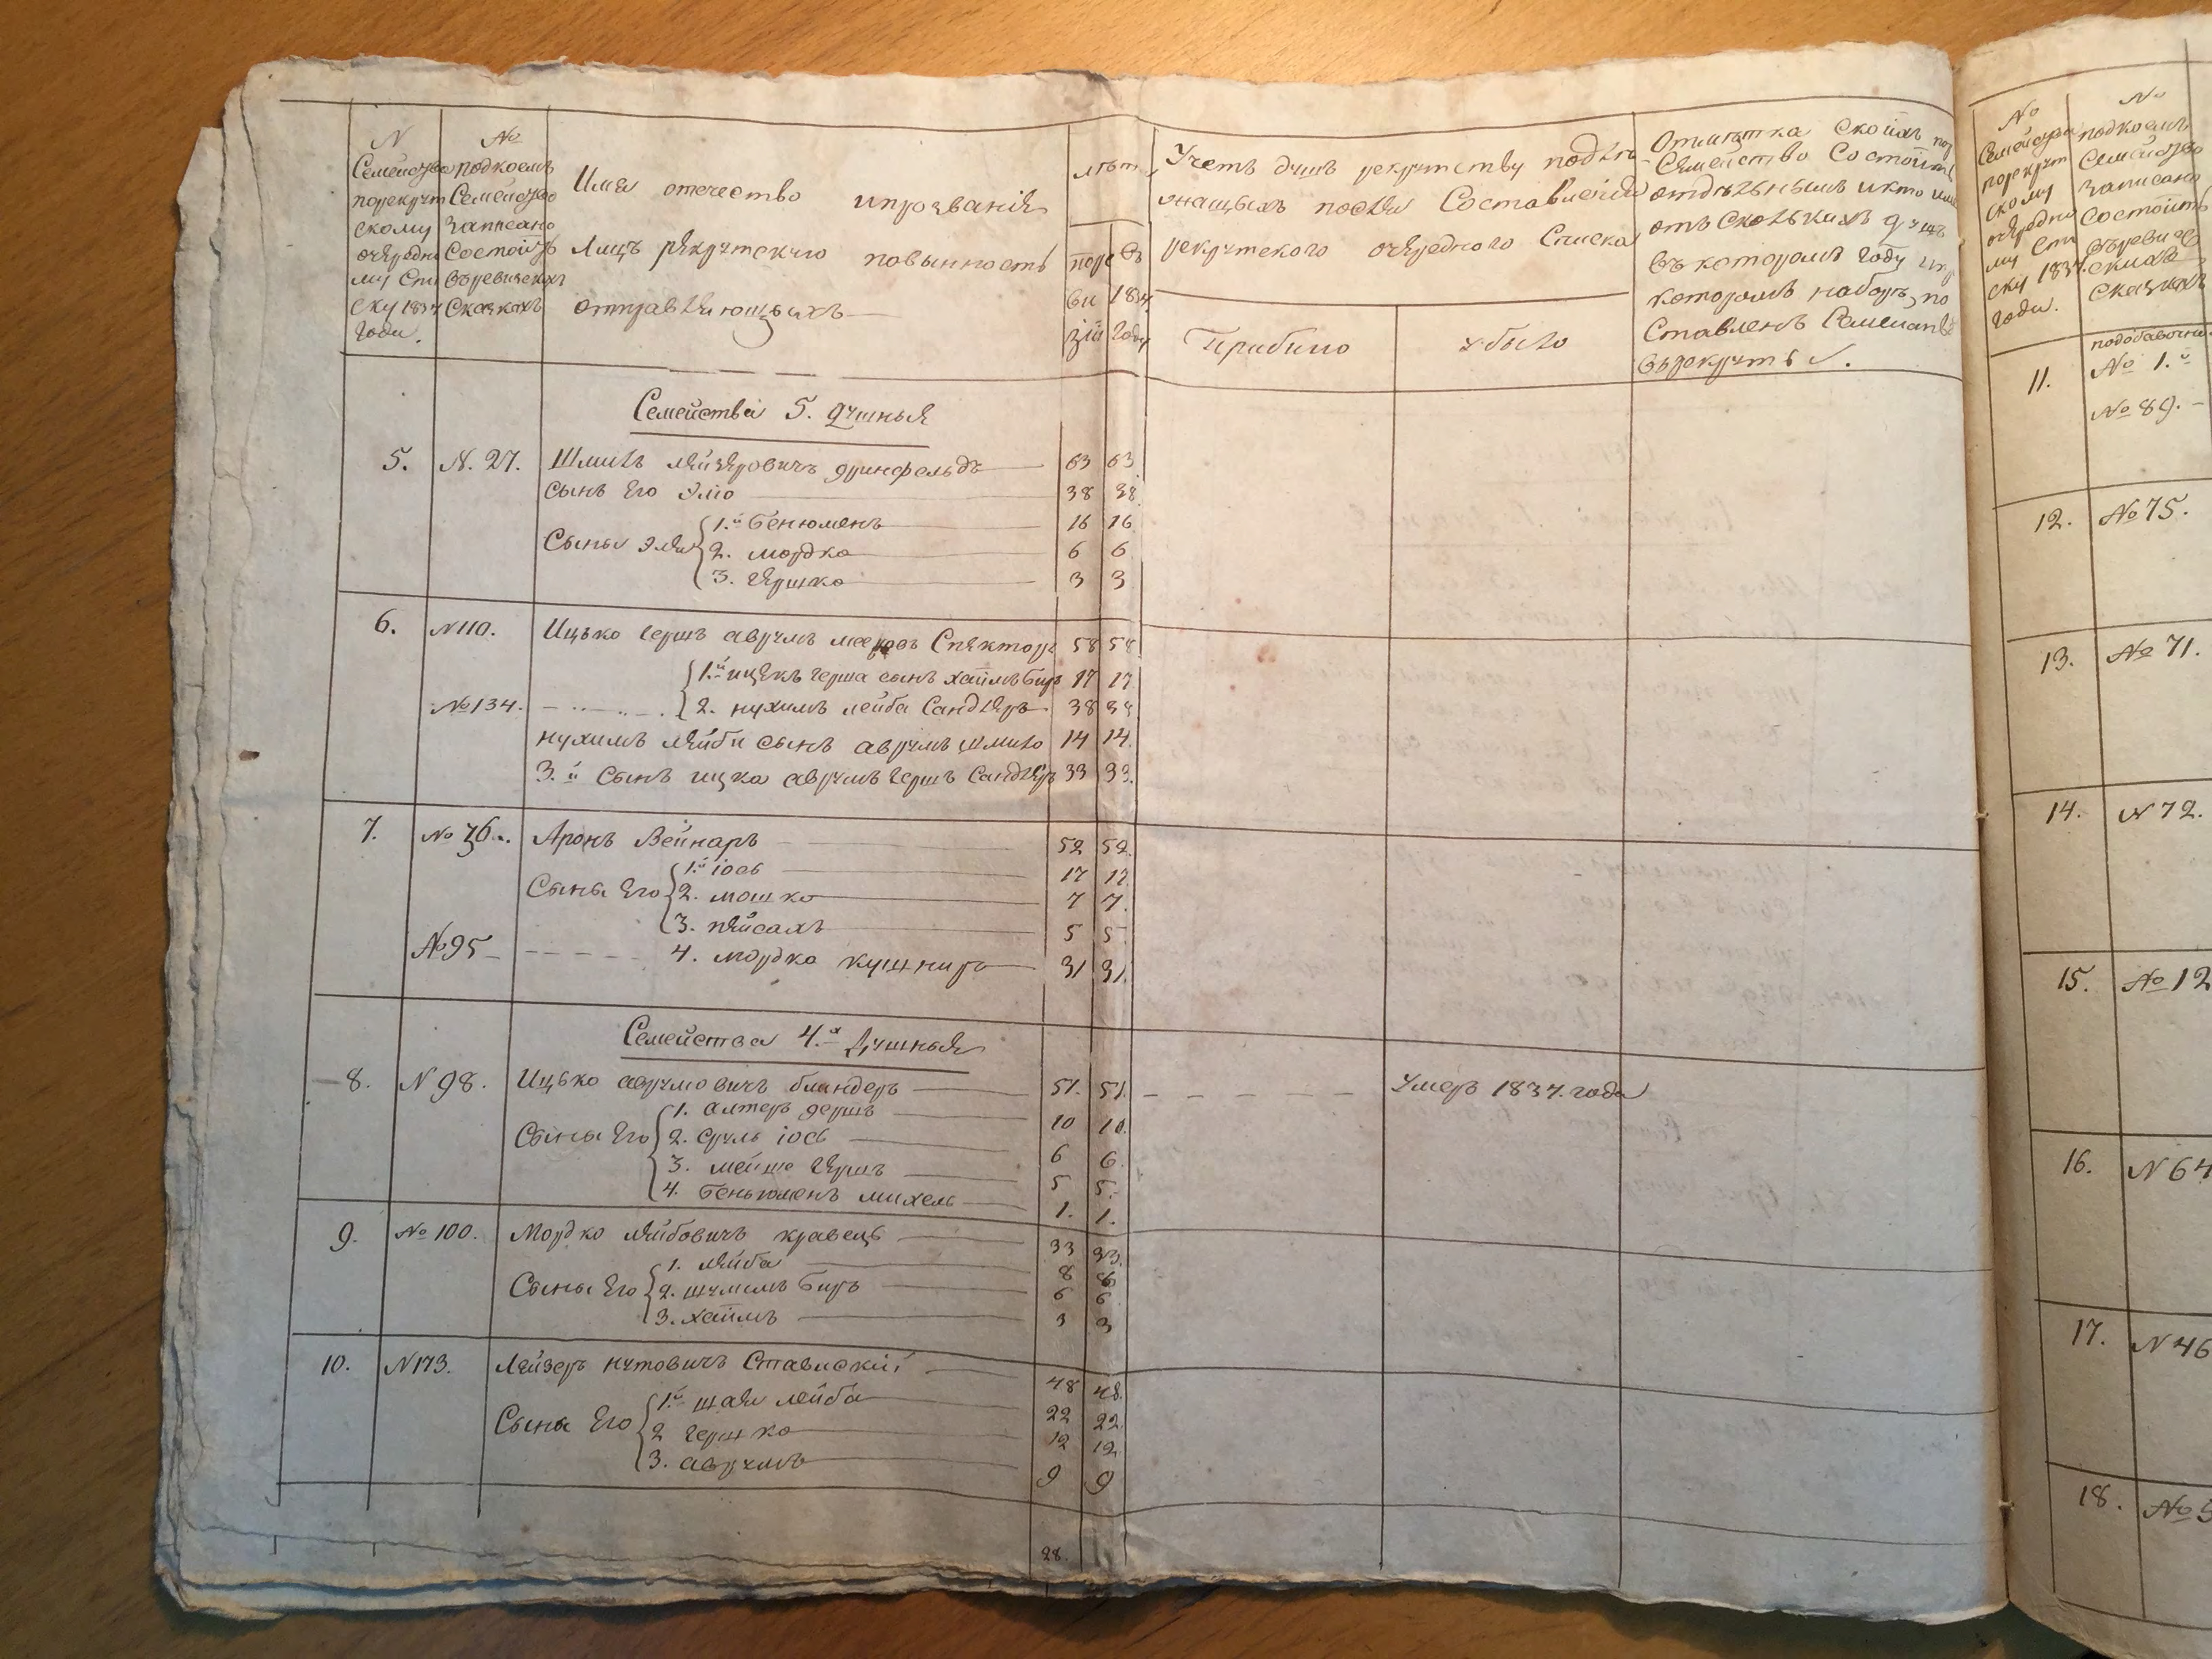 N
Семейства
порекрут
скому
очередно
му спи
ску 1834
годи.
№
подкоемъ
Семейство
записано
Состоитъ
въревизскихъ
Сказкахъ
Имя отечество ипрозванія
Лицъ рекрутскую повынность
отправляющихъ
лѣтъ
поре
ви
зіи
Въ
1834
году
Учетъ душъ рекрутству подле
жащыхъ после Составленія
рекрутского очередного Списка
Прибыло
убыло
Отмѣтка Скоихъ
Семейство Состоитъ
отдѣльнымъ икто
отъ Сколькихъ душъ
въкоторомъ году
которомъ наборъ по
ставленъ
върекруты.
Семейства 5. душныя
5. N. 27. Шмиль Лейзеровичъ гринфельдъ 63 63
Сынъ Его Элio 38 38
Сыны Эли 1.й Бенюменъ 16 16
2. мордко 6 6
3. гершко 3 3
6. N110. Ицько гершъ аврумъ мееровъ Спекторъ 58 58
1.й ицекъ герша сынъ хаимъ Беръ 17 17
№134. 2. нухимъ лейба Сандлеръ 38 38
нухимъ лейби сынъ аврумъ шмило 14 14.
3.й Сынъ ицка аврумъ гершъ Сандлеръ 33 33.
7. № 76. Аронъ Вейнаръ 52 52.
Сыны Его 1.й іось 17 17
2. мошко 7 7.
3. пейсахъ 5 5.
№95 4. мордко кушниръ 31 31.
Семейства 4.я душныя
8. N 98. Ицько аврумовичъ бландеръ 51. 51. Умеръ 1837. года
Сыны Его 1. алтеръ гершъ 10 10.
2. сруль іось 6 6.
3. мейше гершъ 5 5.
4. Беньюменъ михель 1. 1.
9. № 100. Мордко лейбовичъ кравець 33 33.
Сыны Его 1. лейба 8 8
2. шулимъ Беръ 6 6
3. хаимъ 3 3
10. N173. Лейзеръ нутовичъ Ставискій 48 48.
Сыны Его 1.й шая лейба 22 22.
2 гершко 12 12
3. аврумъ 9 9
28.
№
Семейства
порекрут
скому
очередно
му Спи
ску 1834.
годи.
№
подкоемъ
Семейство
записано
Состоитъ
Въреви
скихъ
Сказкахъ
подобавочн
11. № 1.й
№ 89.
12. №75.
13. № 71.
14. N 72.
15. №12
16. N 64
17. N 46
18.